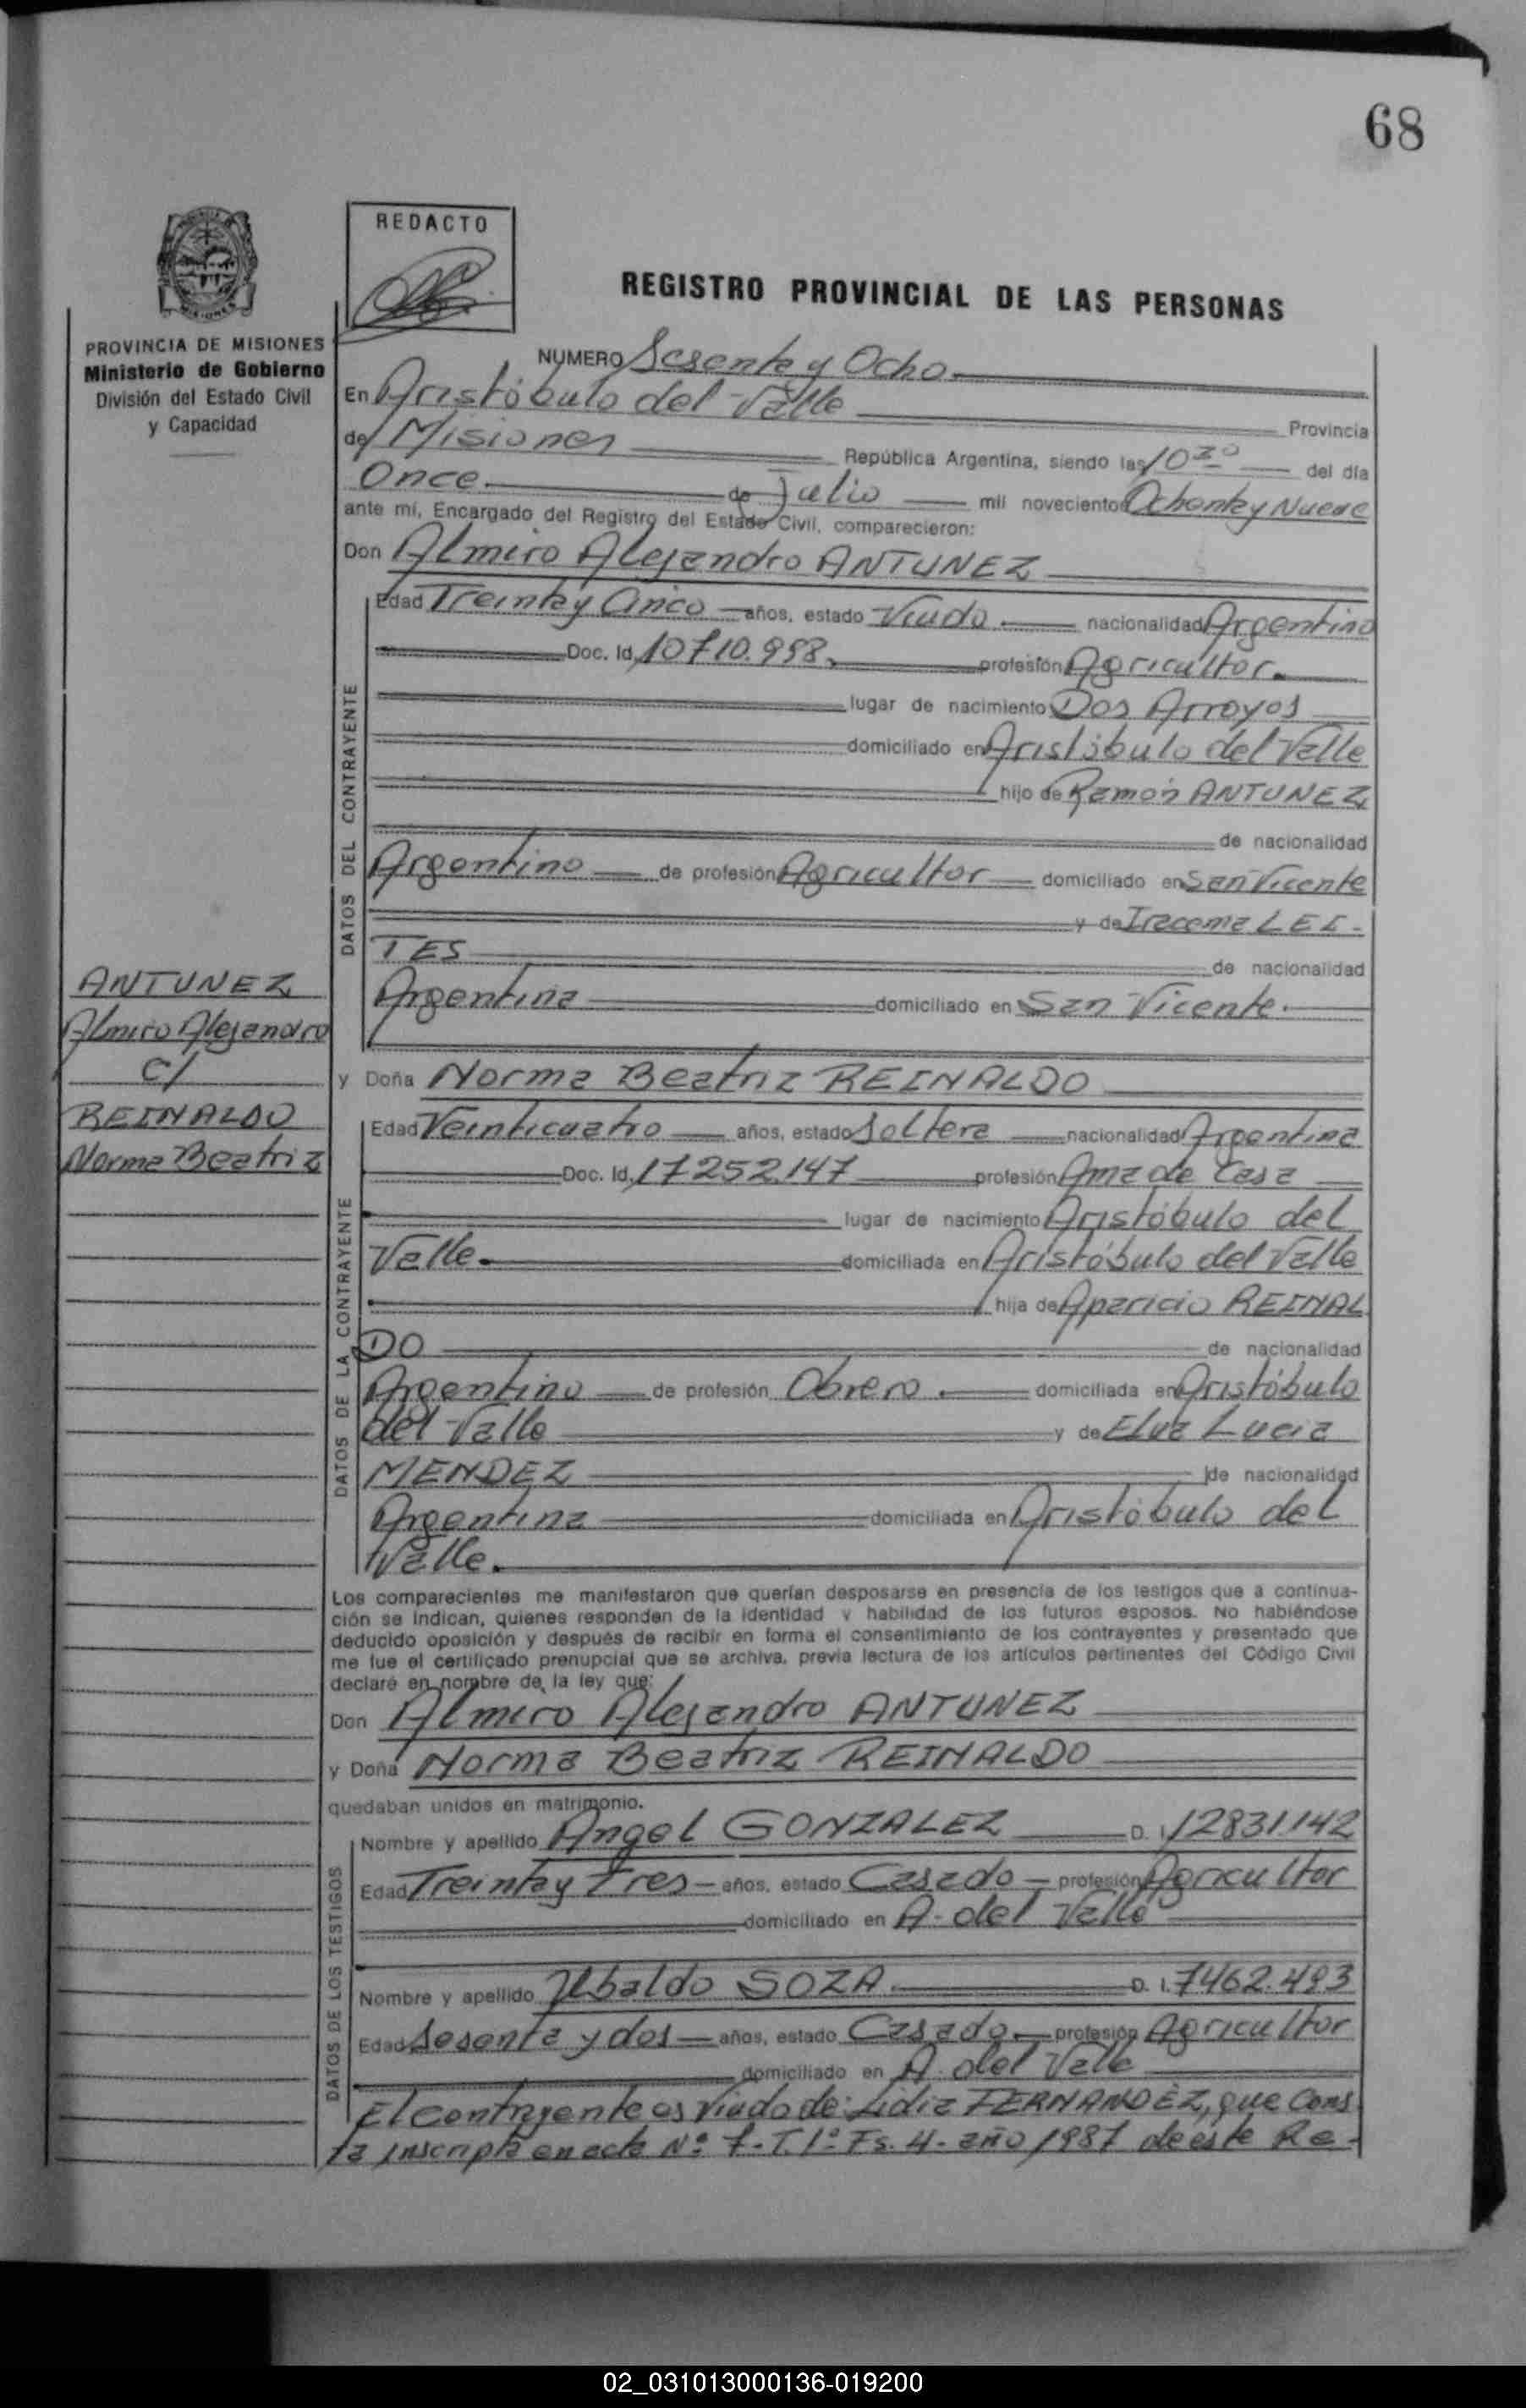 68
REDACTO
REGISTRO PROVINCIAL DE LAS PERSONAS
PROVINCIA DE MISIONES
Ministerio de Gobierno
División del Estado Civil
y Capacidad
NUMERO Sesenta y Ocho.
En Aristóbulo del Valle
Provincia
de Misiones República Argentina, siendo las 10 30 del día
Once. de Julio mil novecientos Ochenta y Nueve
ante mí, Encargado del Registro del Estado Civil, comparecieron:
Don Almiro Alejandro ANTUNEZ
DATOS DEL CONTRAYENTE
Edad Treinta y Cinco años, estado Viudo nacionalidad Argentino
Doc. Id. 10710.998. profesión Agricultor.
lugar de nacimiento Dos Arroyos
domiciliado en Aristóbulo del Valle
hijo de Ramón ANTUNEZ
de nacionalidad
Argentino de profesión Agricultor domiciliado en San Vicente
y de Iracema LEI-
TES de nacionalidad
Argentina domiciliado en San Vicente.
ANTUNEZ
Almiro Alejandro
C/
REINALDO
Norma Beatriz
y Doña Norma Beatriz REINALDO
DATOS DE LA CONTRAYENTE
Edad Veinticuatro años, estado Soltera nacionalidad Argentina
Doc. Id. 17252.147 profesión Ama de Casa
lugar de nacimiento Aristóbulo del
Valle. domiciliada en Aristóbulo del Valle
hija de Aparicio REINAL
DO de nacionalidad
Argentino de profesión Obrero. domiciliada en Aristóbulo
del Valle y de Elva Lucia
MENDEZ de nacionalidad
Argentina domiciliada en Aristóbulo del
Valle.
Los comparecientes me manifestaron que querían desposarse en presencia de los testigos que a continua-
ción se indican, quienes responden de la identidad y habilidad de los futuros esposos. No habiéndose
deducido oposición y después de recibir en forma el consentimiento de los contrayentes y presentado que
me fue el certificado prenupcial que se archiva, previa lectura de los artículos pertinentes del Código Civil
declaré en nombre de la ley que:
Don Almiro Alejandro ANTUNEZ
y Doña Norma Beatriz REINALDO
quedaban unidos en matrimonio.
DATOS DE LOS TESTIGOS
Nombre y apellido Angel GONZALEZ D. I. 12831.142
Edad Treinta y Tres años, estado Casado profesión Agricultor
domiciliado en A. del Valle
Nombre y apellido Ubaldo SOZA. D. I. 7462.493
Edad Sesenta y dos años, estado Casado profesión Agricultor
domiciliado en A. del Valle
El contrayente es Viudo de: Lidia FERNANDEZ, que Cons
ta inscripta en acta Nº 7-T. 1º Fs. 4- año 1987 de este Re-
02_031013000136-019200